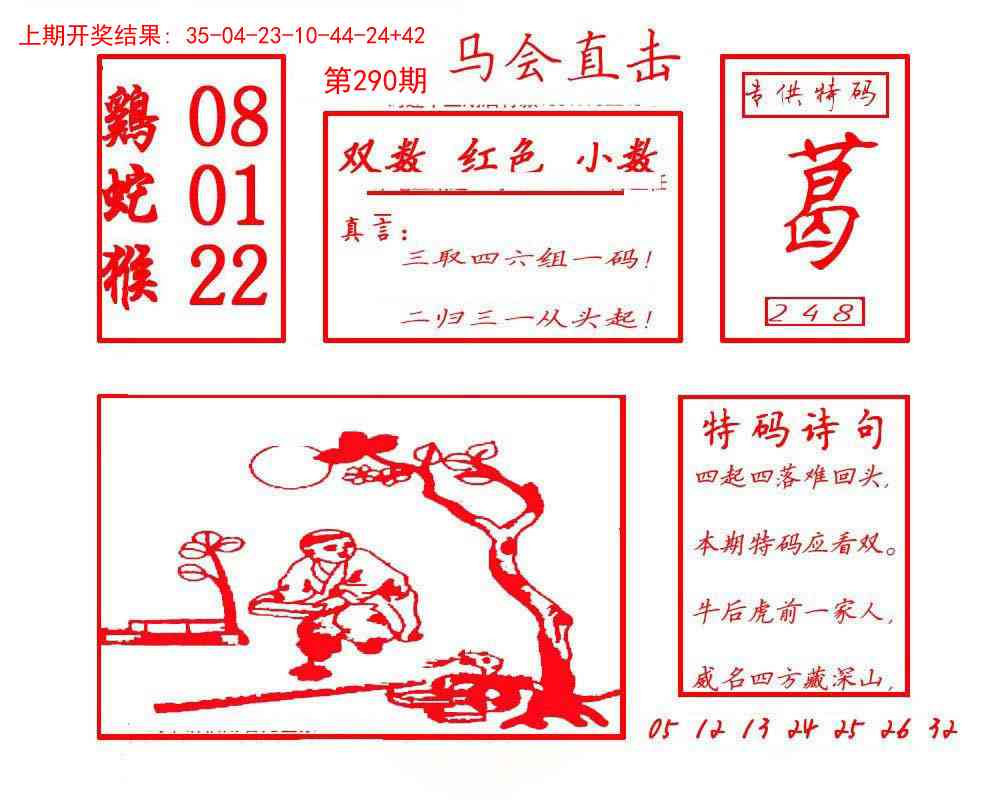 上期开奖结果: 35-04-23-10-44-24+42
第290期
马会直击
鷄 08
蛇 01
猴 22
双数 红色 小数
真言:
三取四六组一码!
二归三一从头起!
专供特码
葛
248
特码诗句
四起四落难回头,
本期特码应看双。
牛后虎前一家人,
威名四方藏深山,
05 12 13 24 25 26 32